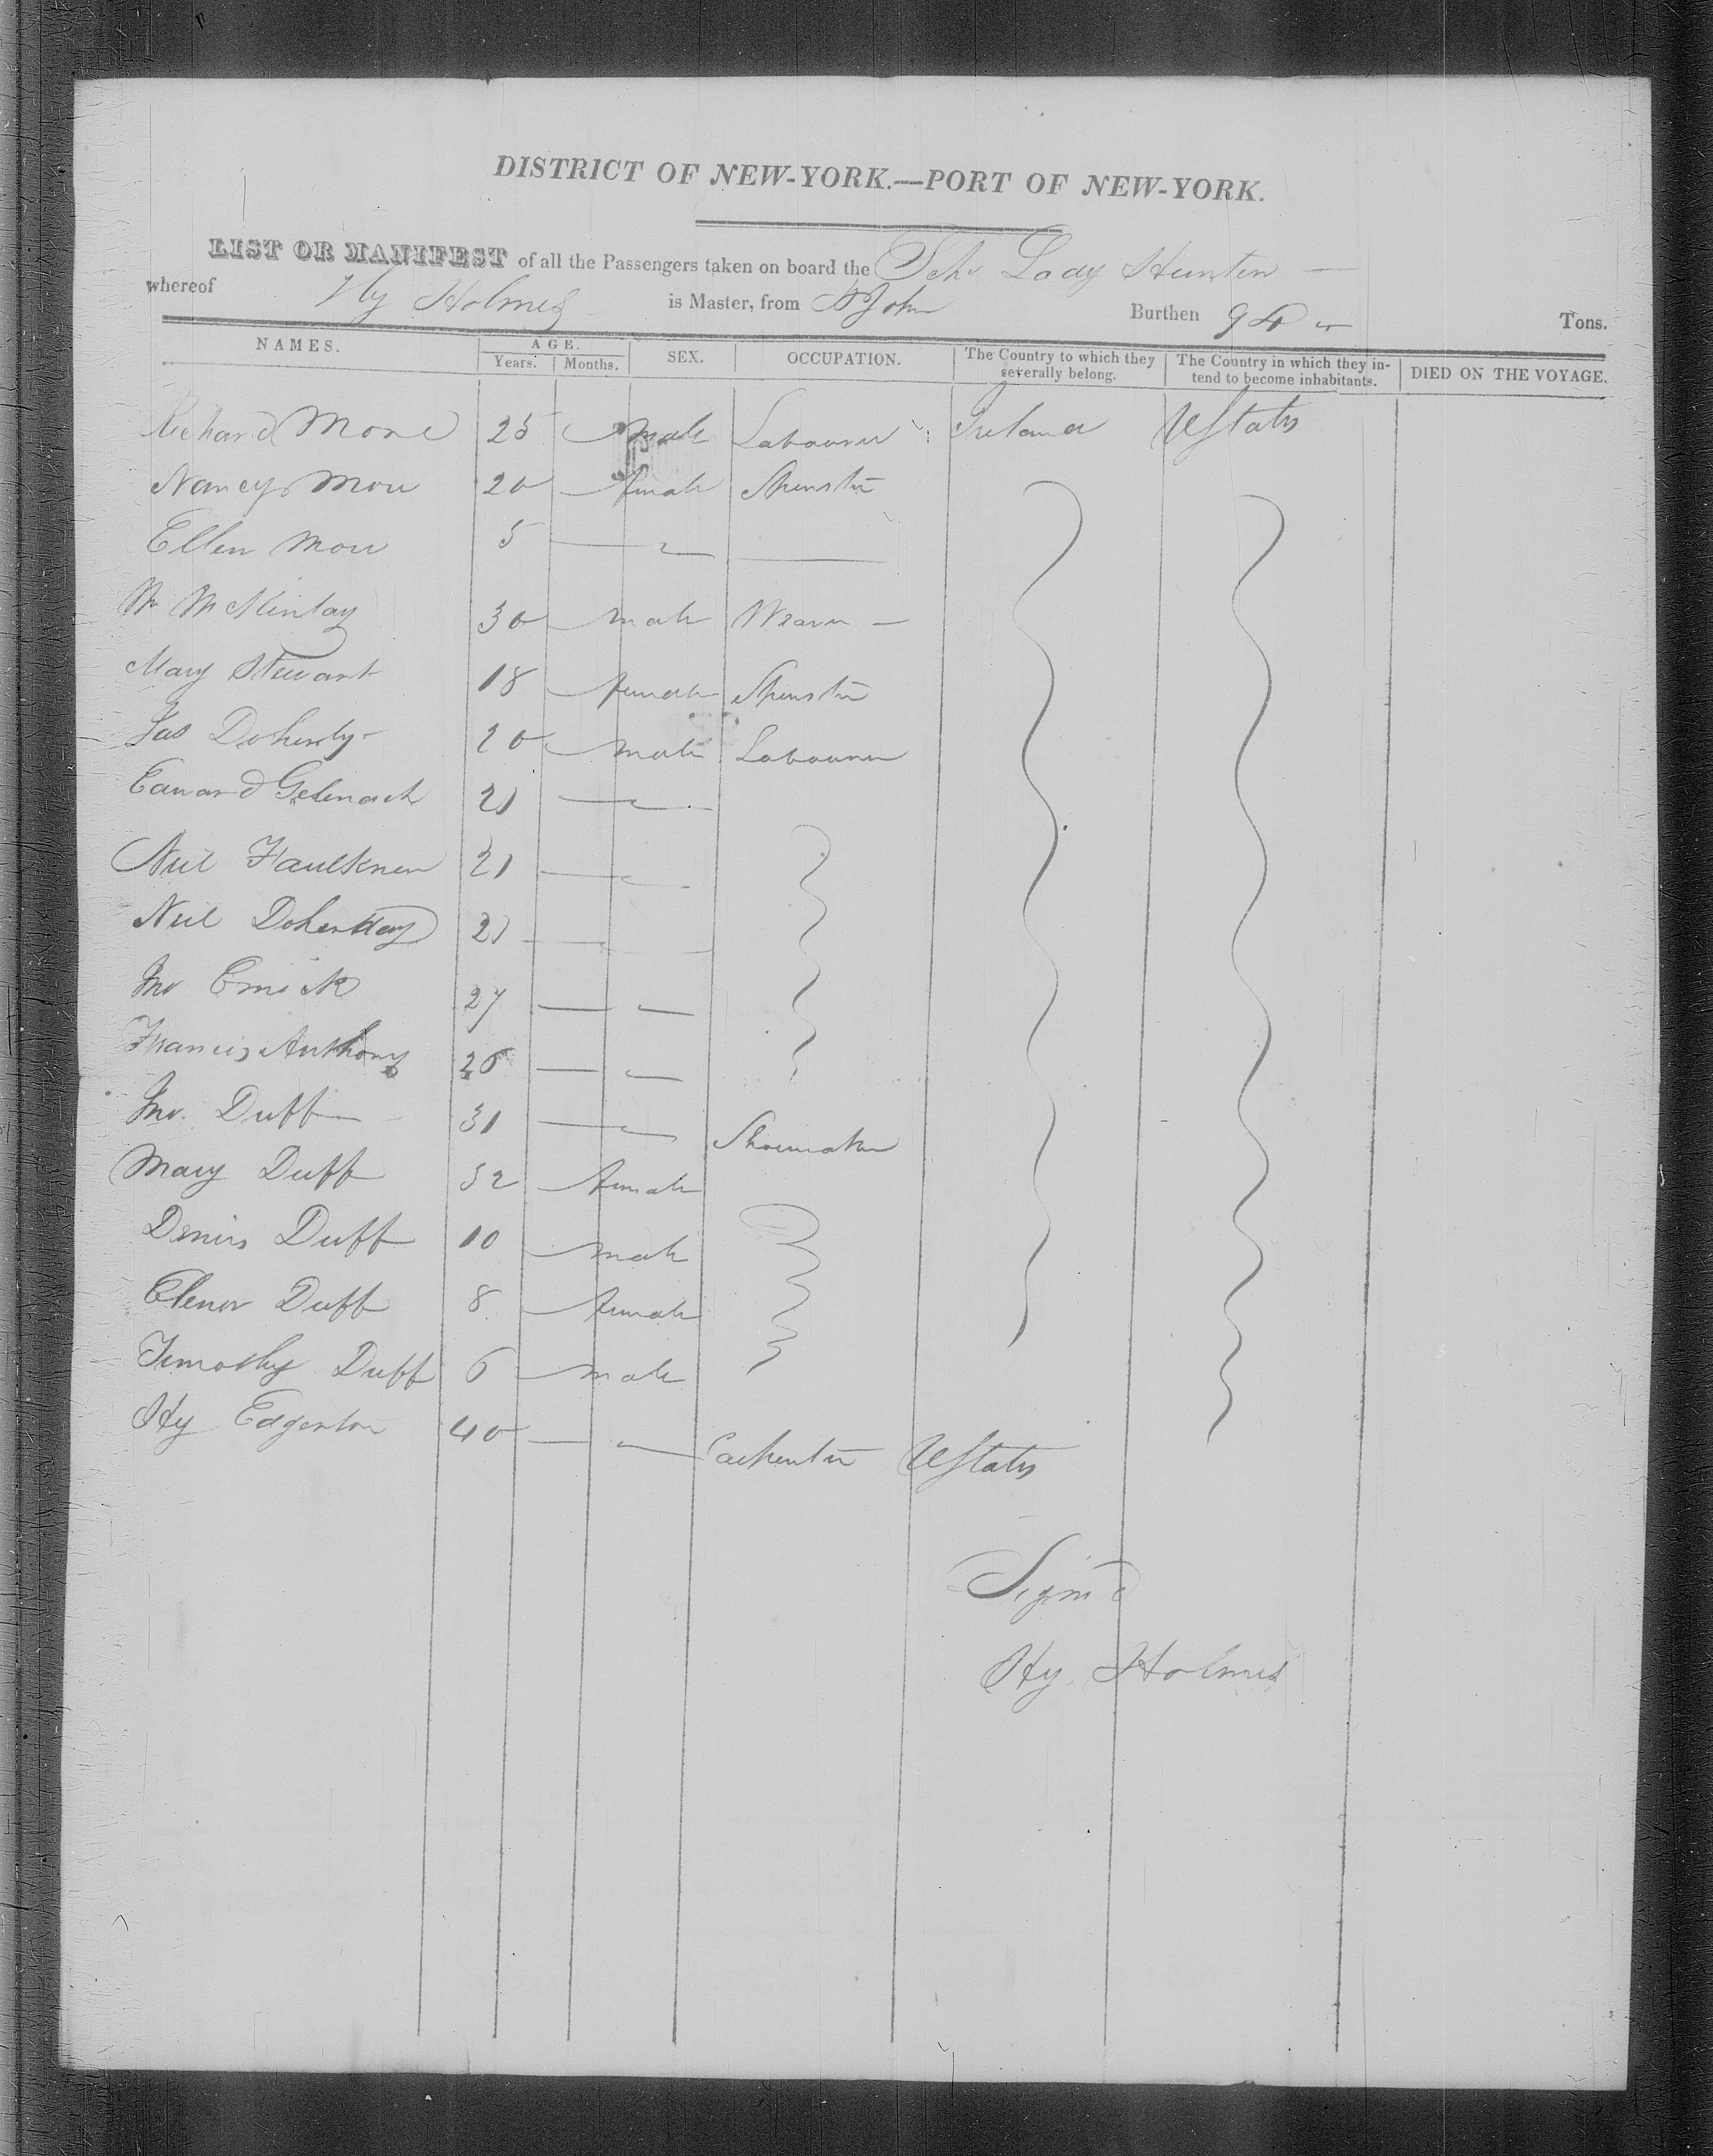 DISTRICT OF NEW-YORK.—PORT OF NEW-YORK.
LIST OR MANIFEST of all the Passengers taken on board the Schr Lady Hunter —
whereof Hy Holmes is Master, from St John Burthen 94 Tons.
NAMES. AGE. Years. Months. SEX. OCCUPATION. The Country to which they severally belong. The Country in which they intend to become inhabitants. DIED ON THE VOYAGE.
Richard More 25 — male Labourer Ireland UStates
Nancy More 20 — female Spinster
Ellen More 5 — —
Wm McKinlay 30 — male Weaver —
Mary Stewart 18 — female Spinster
Jas Doherty 20 — male Labourer
Edward 21 — —
Neil Faulkner 21 — —
Neil Doherty 21 — —
Jno 27 — —
Francis Anthony 26 — —
Jno. Duff 31 — — Shoemaker
Mary Duff 32 — female
Denis Duff 10 — male
Elenor Duff 8 — female
Timothy Duff 6 — male
Hy Edgerton 40 — — Carpenter UStates
Signd
Hy. Holmes